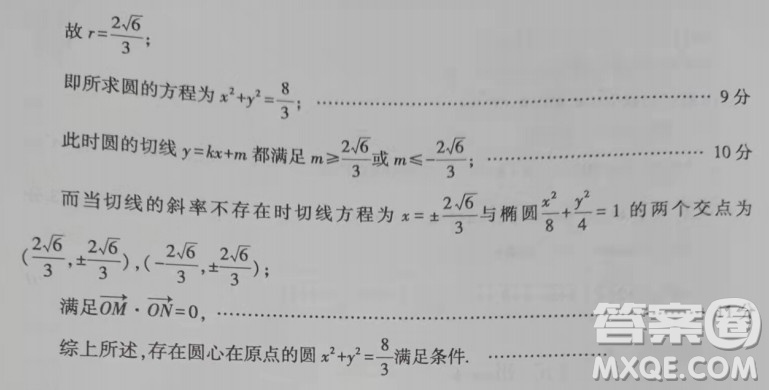 故 r=2√6/3;
即所求圆的方程为 x²+y²=8/3; ………… 9分
此时圆的切线 y=kx+m 都满足 m≥2√6/3 或 m≤-2√6/3; ………… 10分
而当切线的斜率不存在时切线方程为 x=±2√6/3 与椭圆 x²/8+y²/4=1 的两个交点为
(2√6/3,±2√6/3),(-2√6/3,±2√6/3);
满足 OM→·ON→=0, ………… 11分
综上所述,存在圆心在原点的圆 x²+y²=8/3 满足条件. …………
答案圈
MXQE.COM